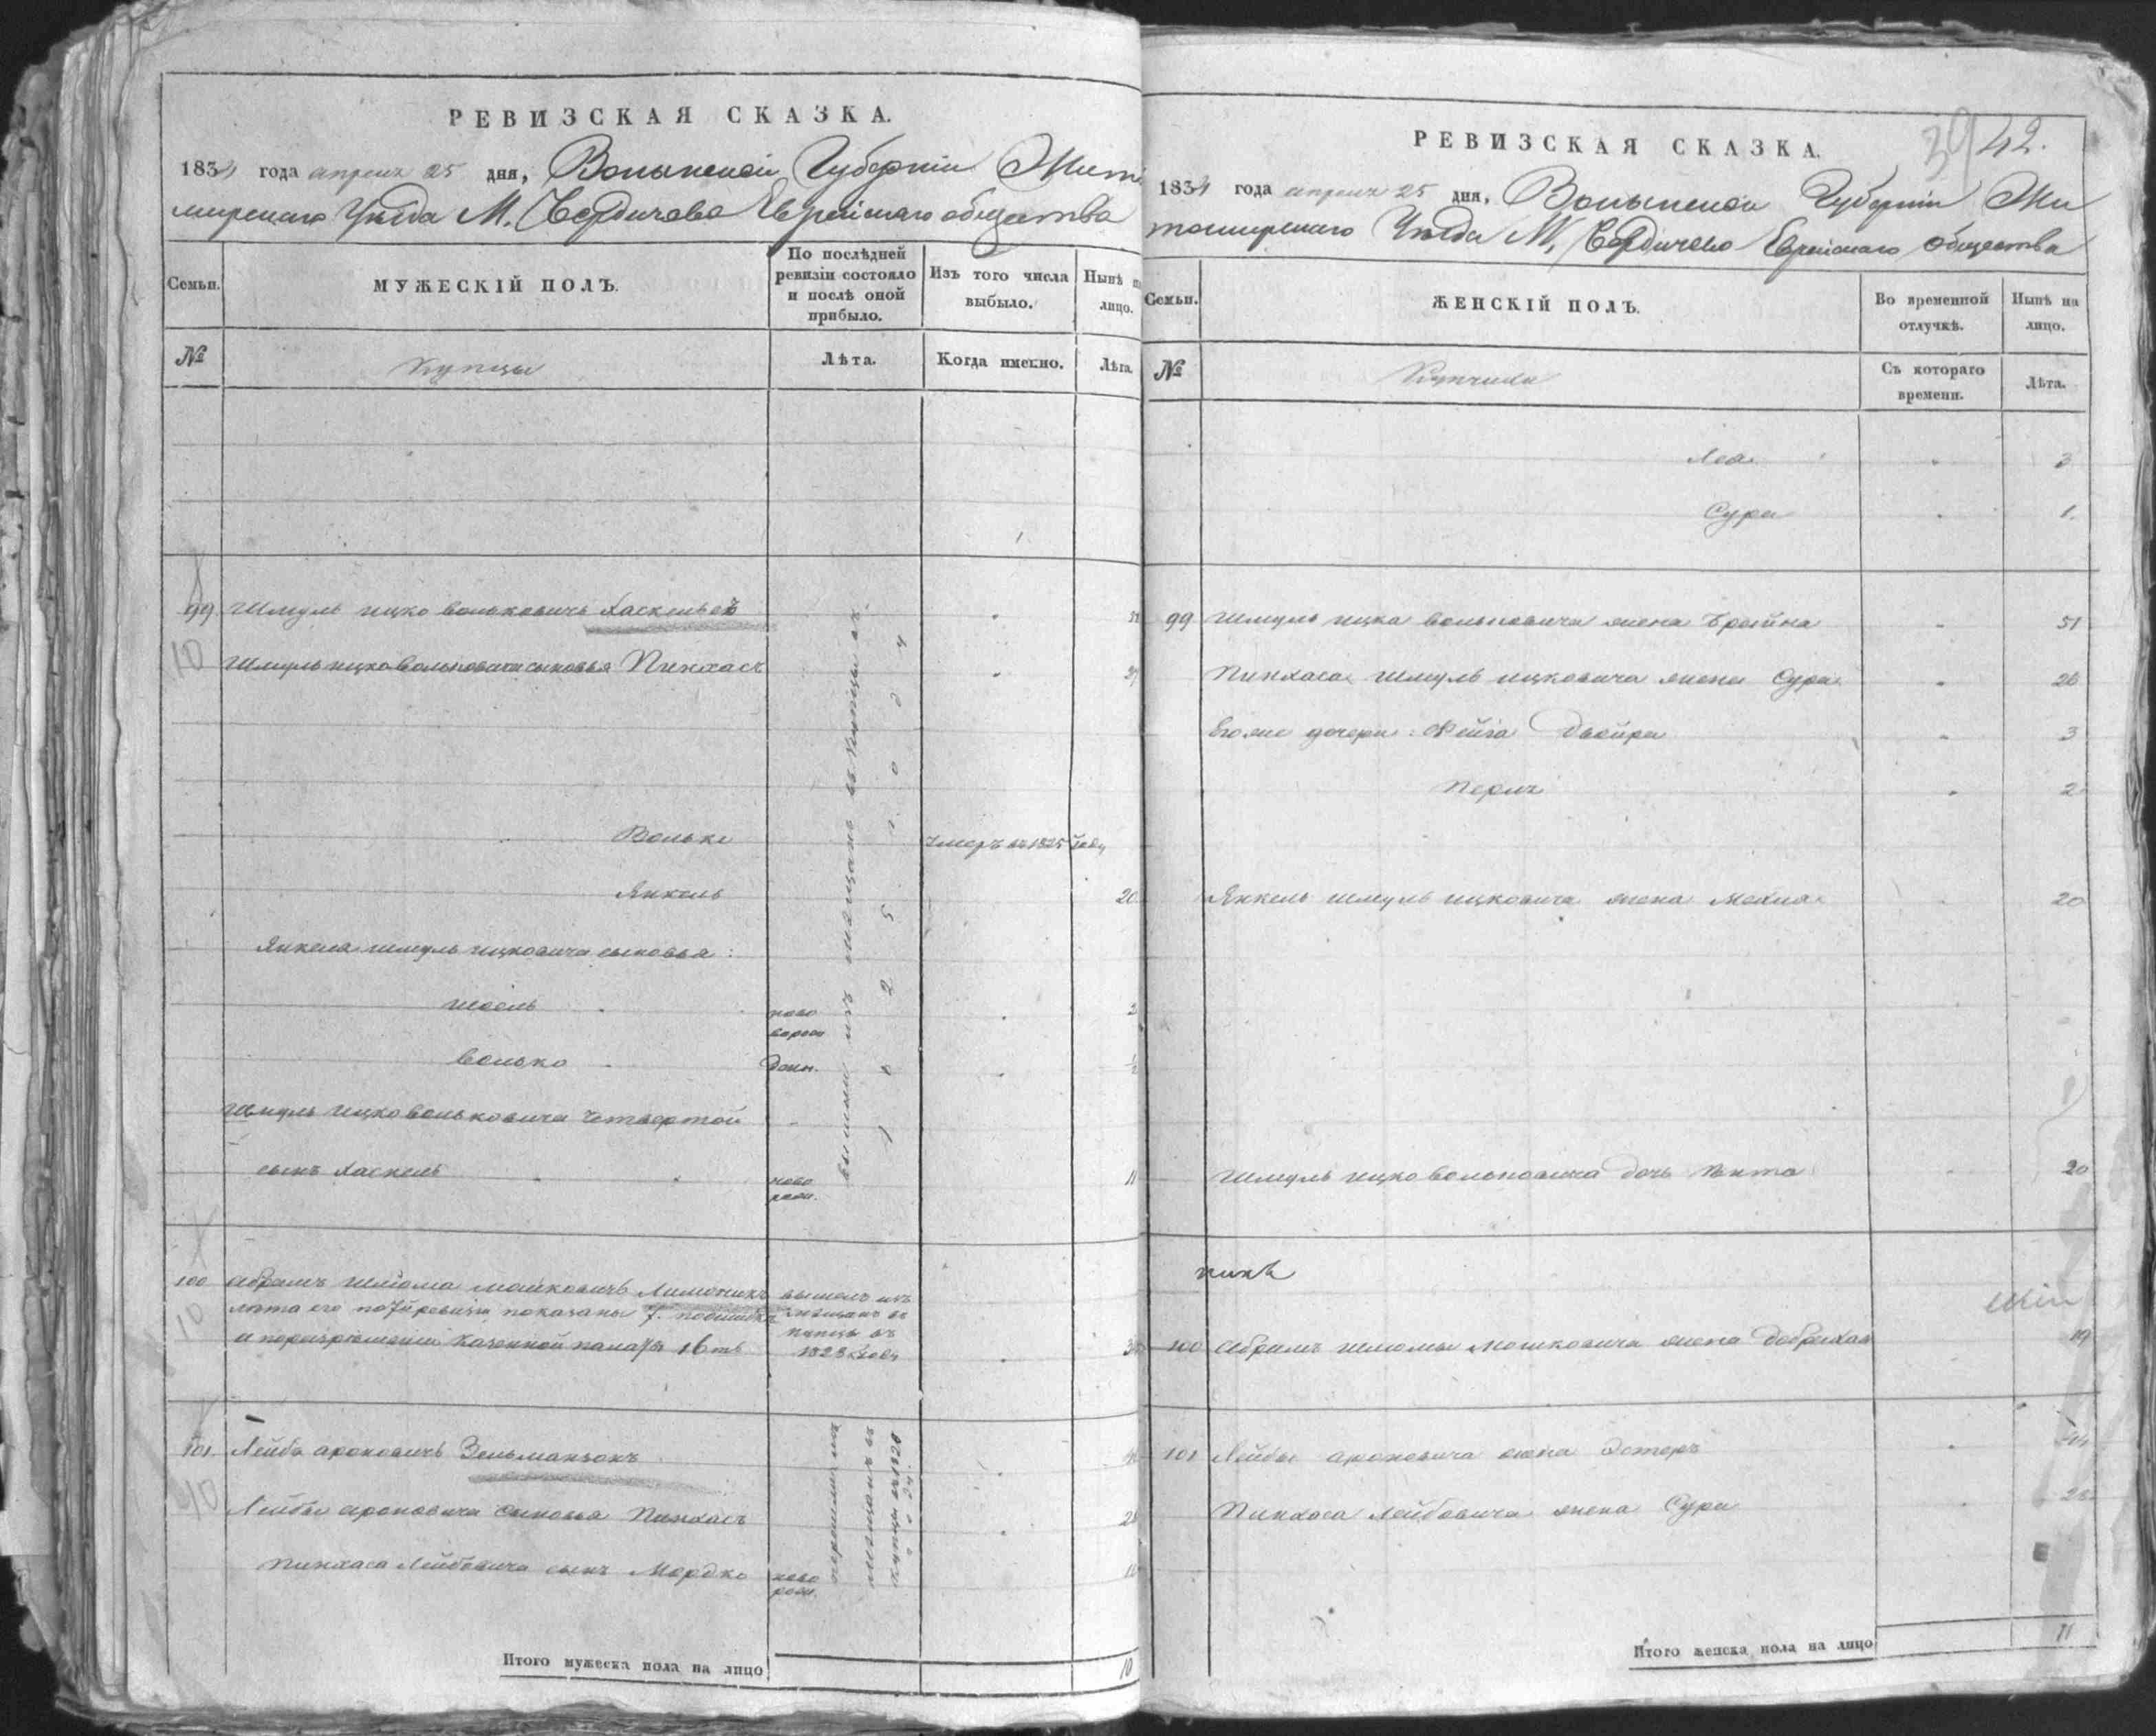 РЕВИЗСКАЯ СКАЗКА.
1834 года апреля 25 дня, Волынской Губернии Жито
мирскаго Уезда М. Бердичева Еврейскаго общества
Семьи.
МУЖЕСКІЙ ПОЛЪ.
По послѣдней ревизіи состояло и послѣ оной прибыло.
Изъ того числа выбыло.
Нынѣ на лицо.
№
Купцы
Лѣта.
Когда именно.
Лѣта.
99. Шмуль Ицко Вольковичъ Хаскельовъ
10 Шмуль Ицко Вольковича сыновья Пинхасъ
Волько Умеръ въ 1825 году
Янкель 20
Янкеля Шмуль Ицковича сыновья:
Шоель ново 3
Волько
Шмуль Ицко Вольковича четвертой
сынъ Хаскель ново рож. 11
вышли изъ мещанъ въ купцы въ
1825 году
100 Абрамъ Шлиома Мошковичъ Лимоникъ вышелъ изъ
10 лета его по 7й ревизіи показаны 7. мещанъ въ
казенной палаты 16ть купцы въ
1828 году
101. Лейба Ароновичъ Зельмансонъ
10 Лейбы Ароновича сыновья Пинхасъ 28
Пинхаса Лейбовича сынъ Мордко ново рож.
мещанъ въ
купцы въ 1826
Итого мужеска пола на лицо 10
39 42.
РЕВИЗСКАЯ СКАЗКА.
1834 года апреля 25 дня, Волынской Губернии Жи
томирскаго Уезда М. Бердичева Еврейскаго общества
Семьи.
ЖЕНСКІЙ ПОЛЪ.
Во временной отлучкѣ.
Нынѣ на лицо.
№
Купчихи
Съ котораго времени.
Лѣта.
Леа 3
Сура 1.
99 Шмуль Ицка Вольковича жена Бройна 51
Пинхаса Шмуль Ицковича жена Сура 26
Его же дочери: Фейга Двойра 3
Перль 2
Янкель Шмуль Ицковича жена Махля 20
Шмуль Ицко Вольковича дочь 20
100 Абрамъ Шлиомы Мошковича жена 19
101 Лейбы Ароновича жена Эстеръ
Пинхаса Лейбовича жена Сура 28
Итого женска пола на лицо 11